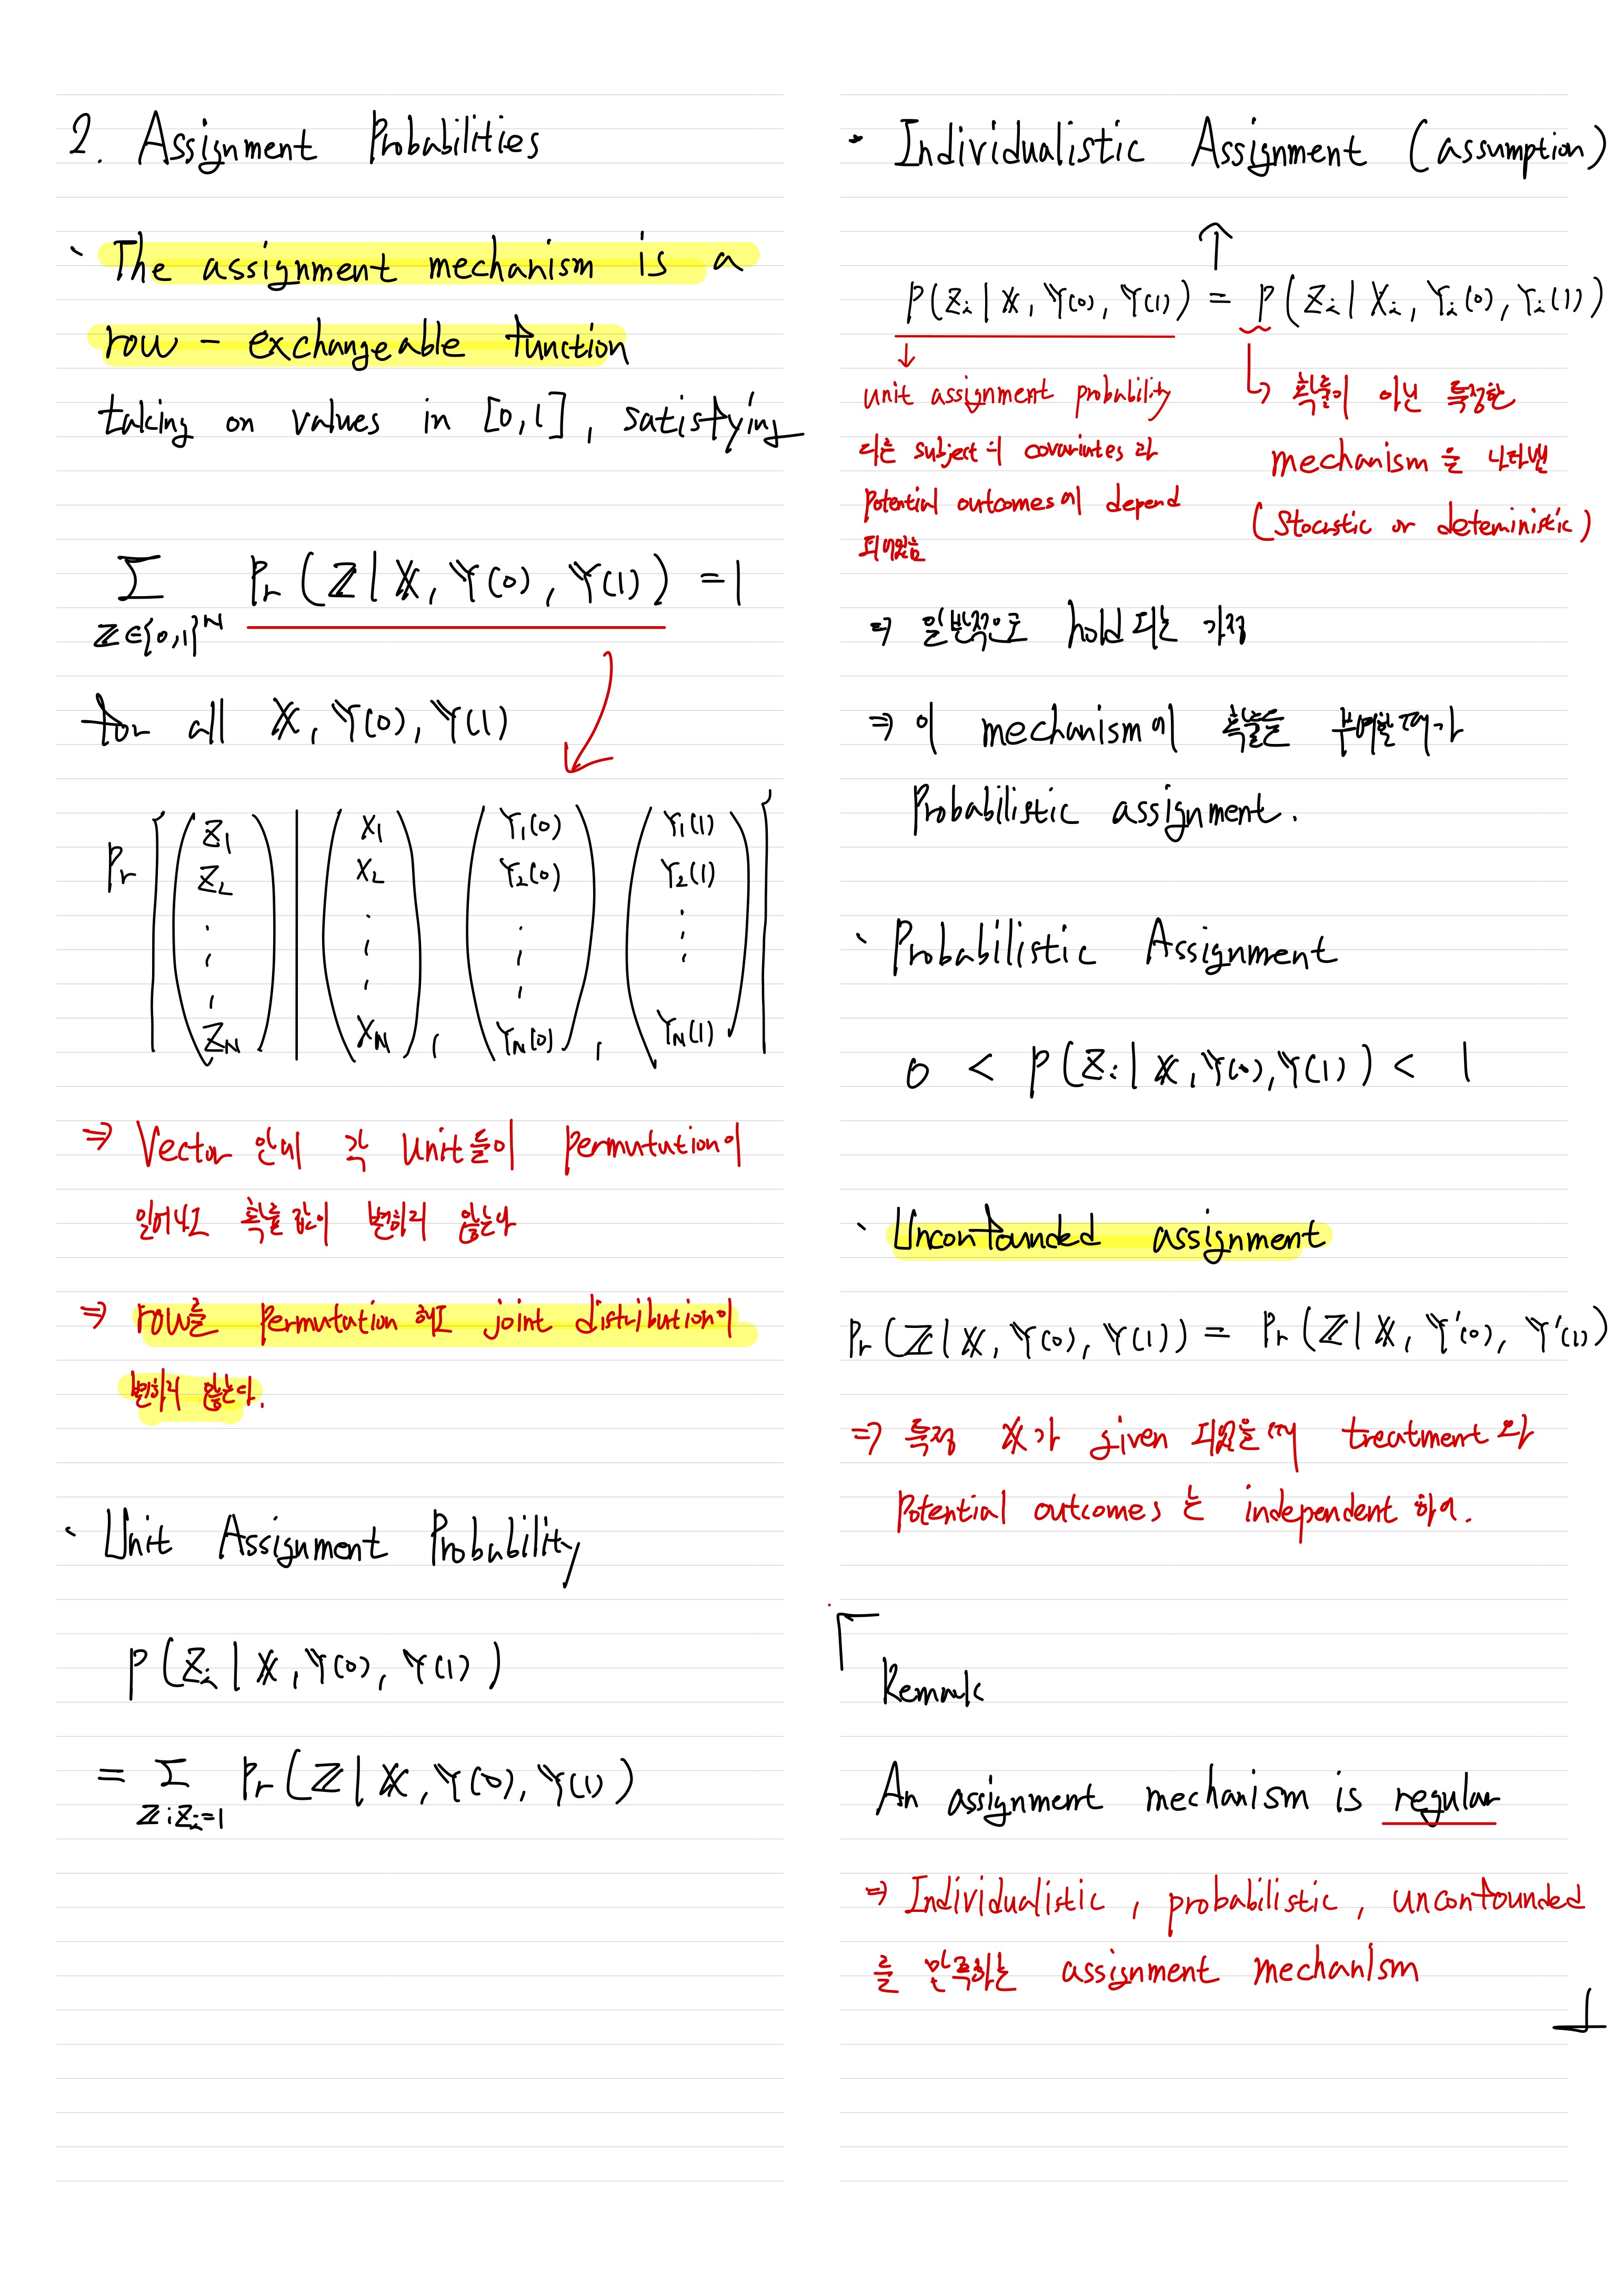 2. Assignment Probabilities
· The assignment mechanism is a
row - exchangeable function
taking on values in [0,1], satisfying
Σ Pr (Z | X, Y(0), Y(1)) = 1
Z∈{0,1}^N
for all X, Y(0), Y(1)
Pr { ( Z1 | X1 Y1(0) Y1(1)
Z2 X2 Y2(0) Y2(1)
⋮ ⋮ ⋮ ⋮
ZN ) XN , YN(0) , YN(1) }
⇒ Vector 안에 각 unit들이 permutation이
일어나도 확률 값이 변하지 않는다
⇒ row를 permutation 해도 joint distribution이
변하지 않는다.
· Unit Assignment Probability
P(Zi | X, Y(0), Y(1))
= Σ Pr(Z | X, Y(0), Y(1))
Z:Zi=1
· Individualistic Assignment (assumption)
↑
P(Zi | X, Y(0), Y(1)) = P(Zi | Xi, Yi(0), Yi(1))
↓
unit assignment probability
다른 subject의 covariates 와
potential outcomes에 depend
되어있음
↳ 확률이 아닌 특정한
mechanism을 나타냄
(Stocastic or deteministic)
⇒ 일반적으로 hold 되는 가정
⇒ 이 mechanism에 확률을 부여할때가
Probabilistic assignment.
· Probabilistic Assignment
0 < P(Zi | X, Y(0), Y(1)) < 1
· Unconfounded assignment
Pr(Z | X, Y(0), Y(1)) = Pr(Z | X, Y'(0), Y'(1))
⇒ 특정 X가 given 되었을때 treatment 와
potential outcomes 는 independent 하다.
Remark
An assignment mechanism is regular
⇒ Individualistic, probabilistic, unconfounded
를 만족하는 assignment mechanism